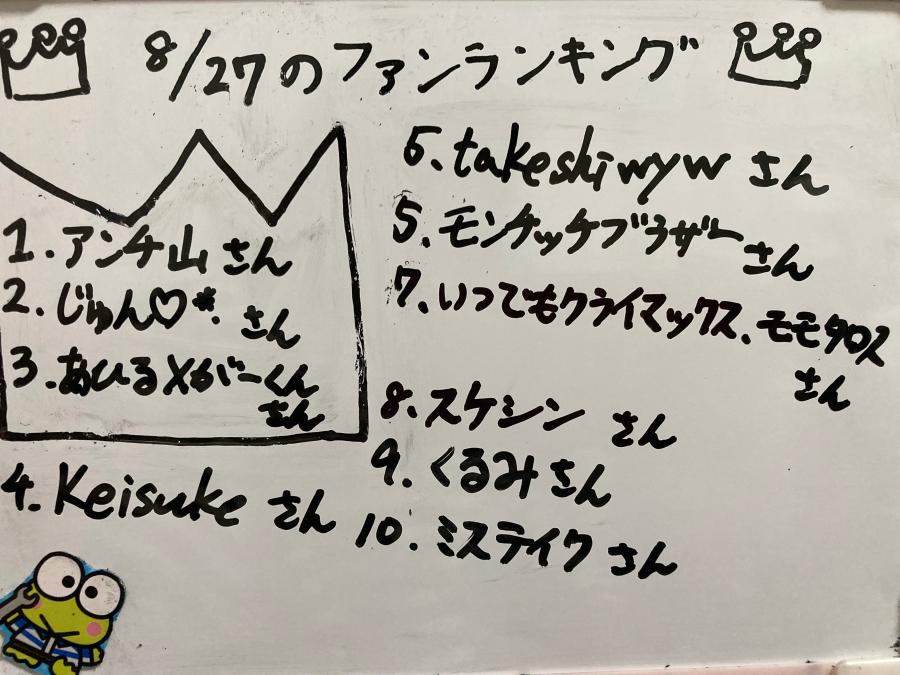 8/27のファンランキング
1. アンチ山 さん
2. じゅん♡*. さん
3. あひる×がーくん さん
4. Keisuke さん
5. takeshiwyw さん
5. モンチッチブラザー さん
7. いつでもクライマックス、モモタロス
さん
8. スケシン さん
9. くるみ さん
10. ミステイク さん